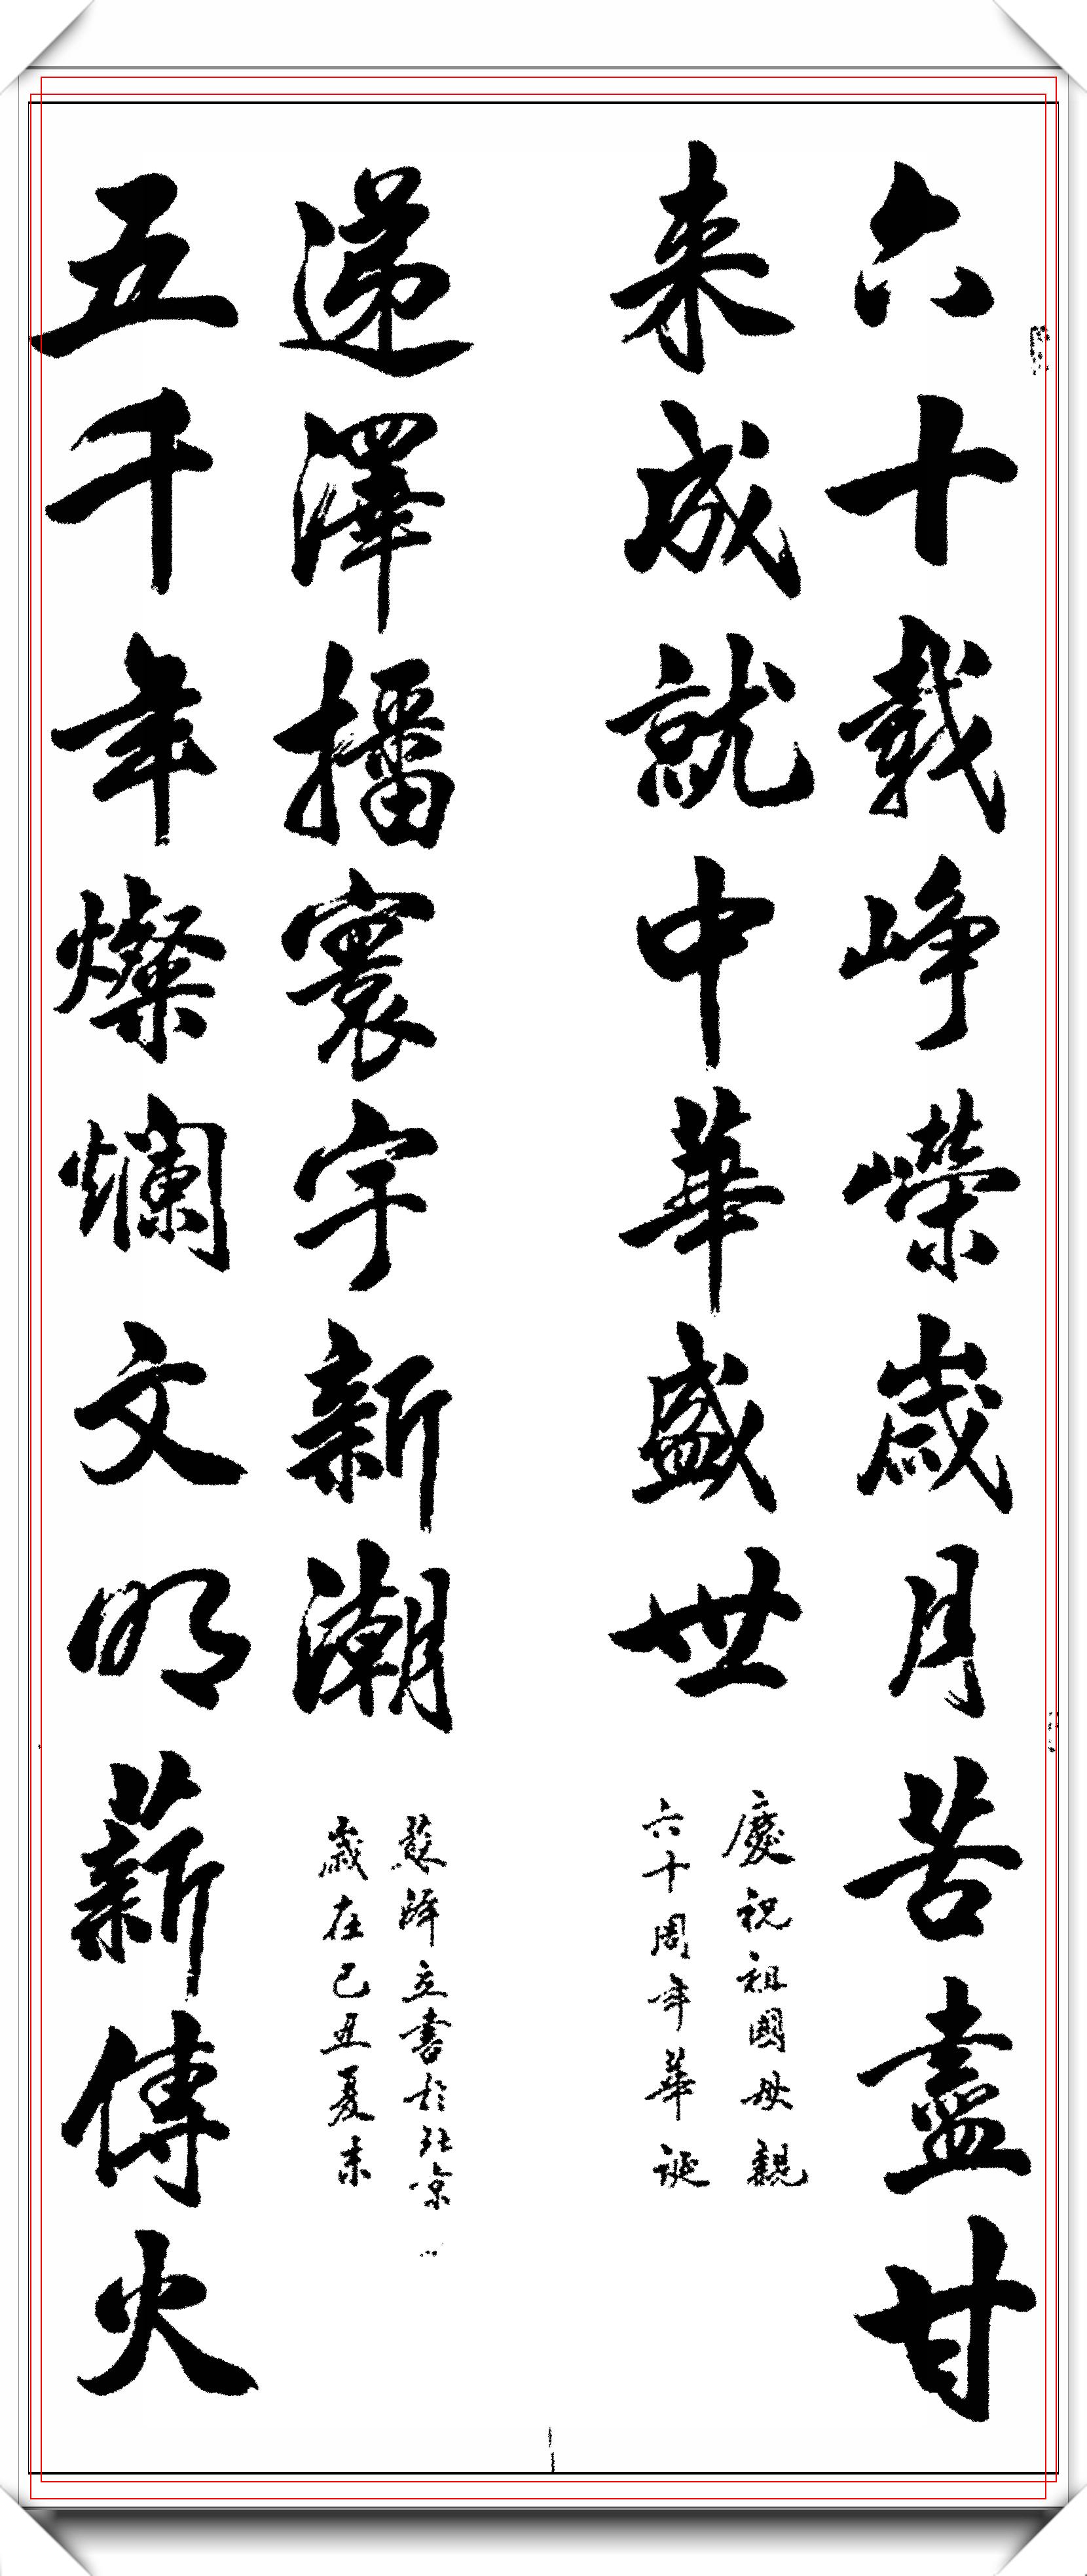 六十載崢嶸歲月苦盡甘
来成就中華盛世
慶祝祖國母親
六十周年華誕
五千年燦爛文明薪傳火
递澤播寰宇新潮
歲在己丑夏末
蘇澤立書於北京